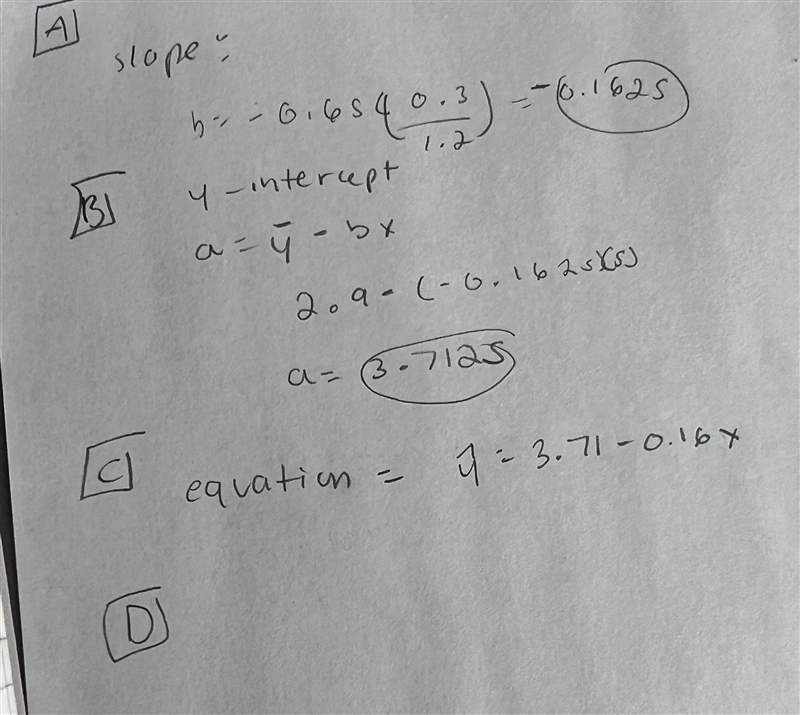 A
slope:
b = -0.65 ( 0.3 / 1.2 ) = -0.1625
B
y-intercept
a = ȳ - bx
2.9 - (-0.1625)(5)
a = 3.7125
C
equation = ŷ = 3.71 - 0.16x
D